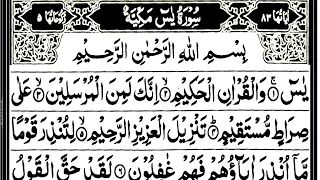 اٰیَاتُهَا ٨٣ سُوْرَةُ يٰسٓ مَكِّيَّةٌ رُكُوْعَاتُهَا ٥
بِسْمِ اللّٰهِ الرَّحْمٰنِ الرَّحِيْمِ
يٰسٓ ۚ﴿١﴾ وَالْقُرْاٰنِ الْحَكِيْمِ ۙ﴿٢﴾ اِنَّكَ لَمِنَ الْمُرْسَلِيْنَ ۙ﴿٣﴾ عَلٰى
صِرَاطٍ مُّسْتَقِيْمٍ ؕ﴿٤﴾ تَنْزِيْلَ الْعَزِيْزِ الرَّحِيْمِ ۙ﴿٥﴾ لِتُنْذِرَ قَوْمًا
مَّاۤ اُنْذِرَ اٰبَآؤُهُمْ فَهُمْ غٰفِلُوْنَ ﴿٦﴾ لَقَدْ حَقَّ الْقَوْلُ